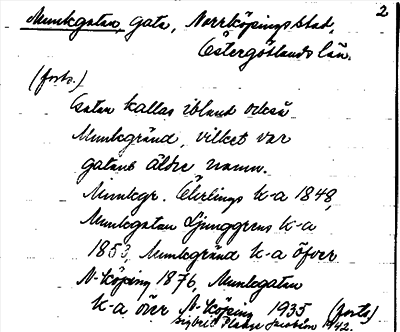 2
Munkgatan, gata, Norrköpings stad,
Östergötlands län.
(forts.)
Gatan kallas ibland också
Munkgränd, vilket var
gatans äldre namn.
Munkgr. Öhrlings k-a 1848,
Munkgatan Ljunggrens k-a
1853, Munkgränd k-a öfver
N-köping 1876, Munkgatan
k-a över N-köping 1935 (forts)
Sigbrit Plænge Jacobson 1942.